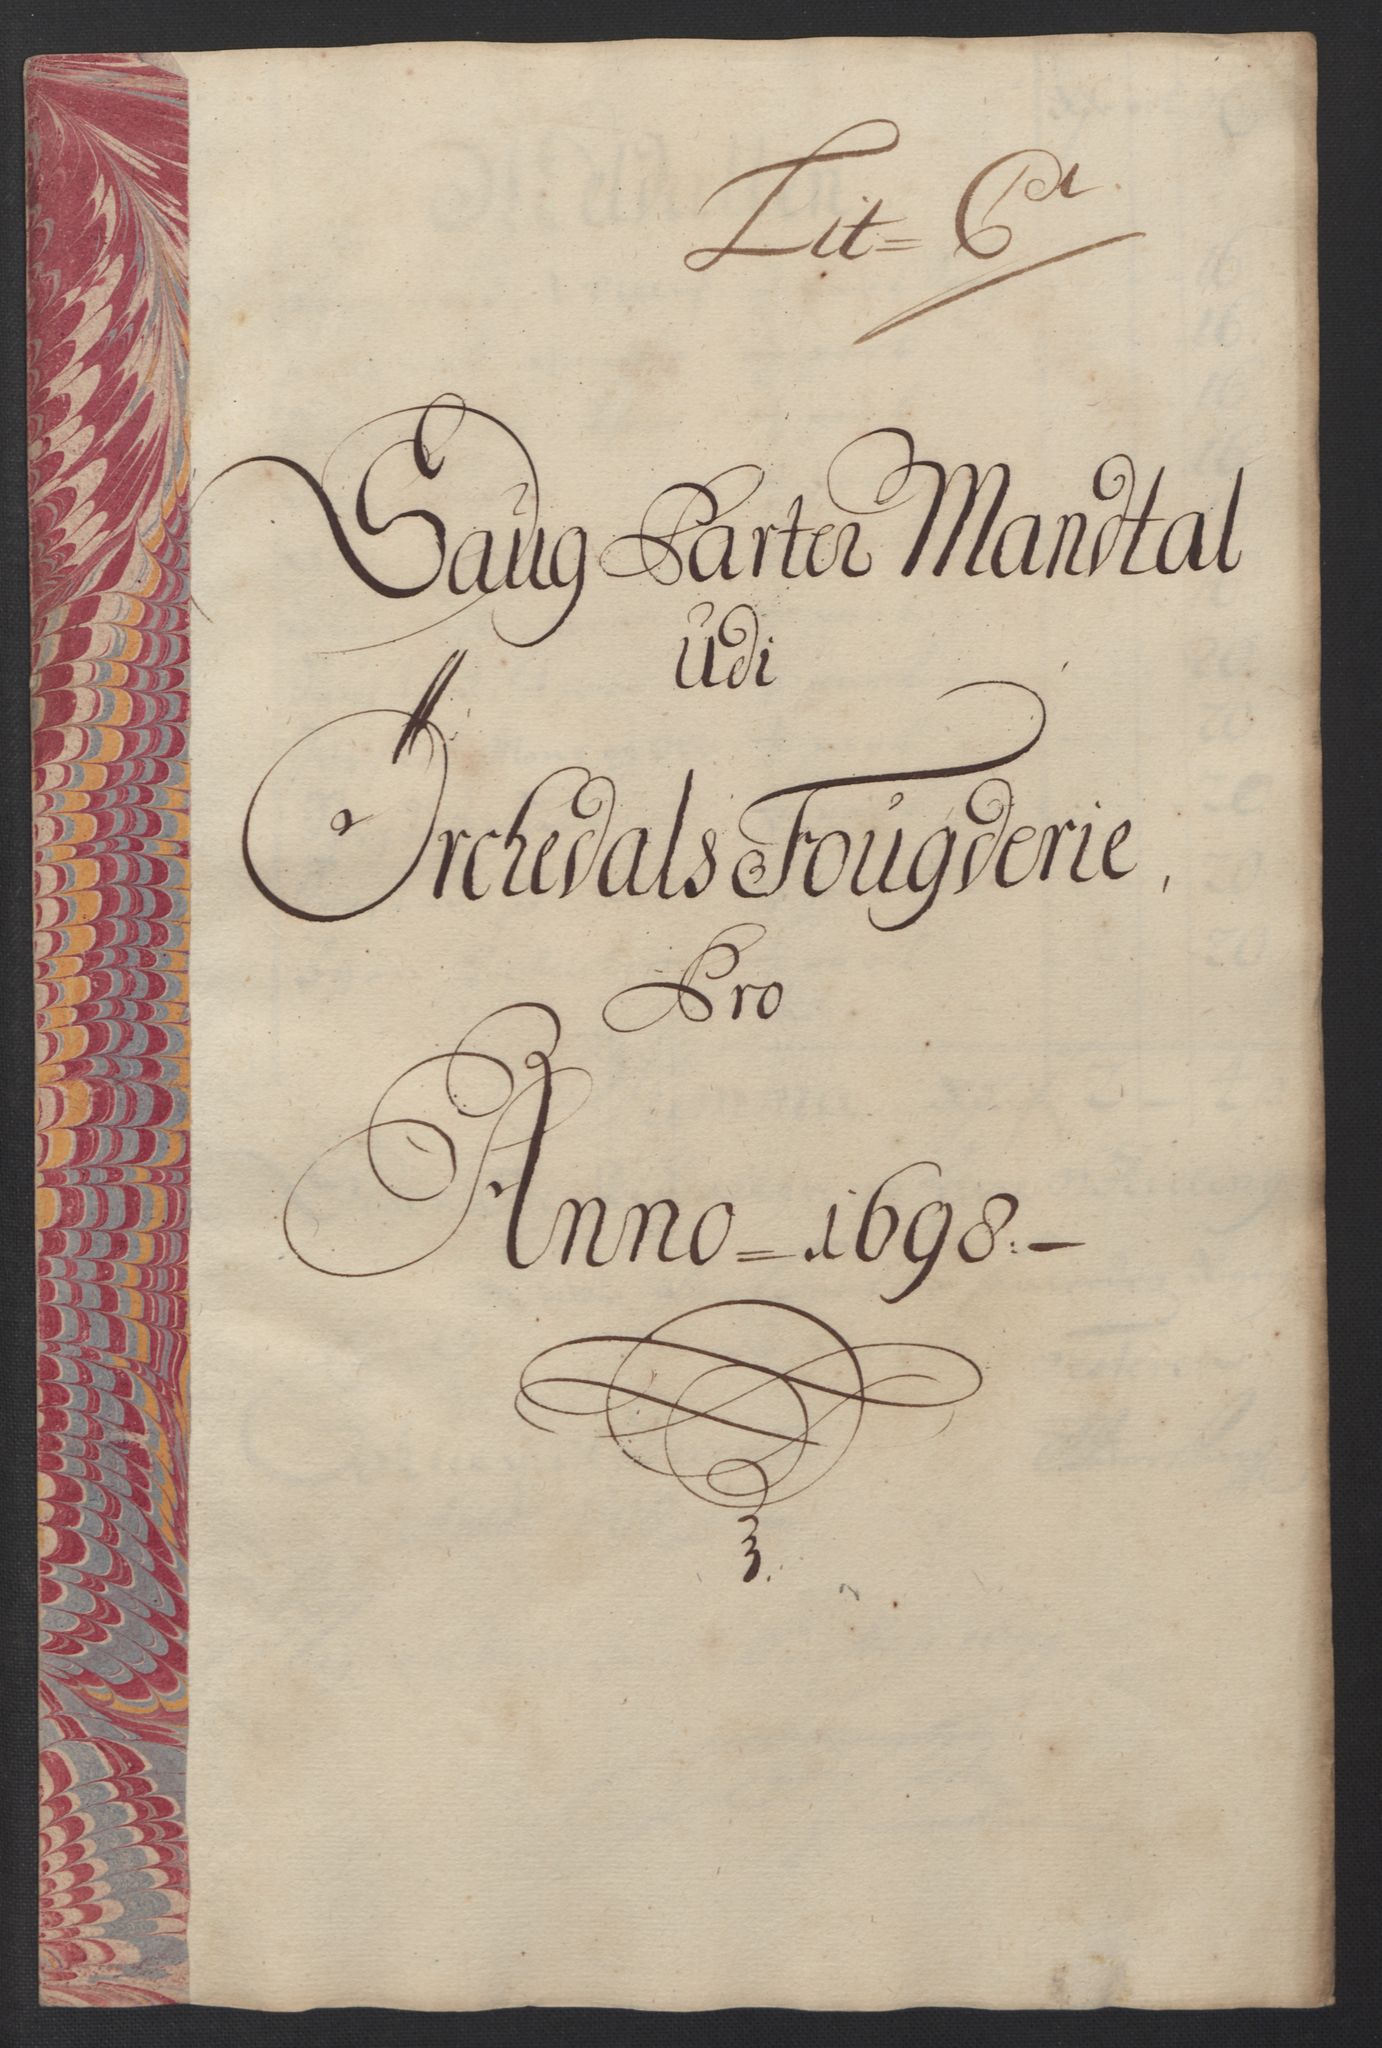 Lit= C a
Saug Parter Mandtal
udi
Orchedals Fougderie,
Pro
Anno = 1698.-
3.